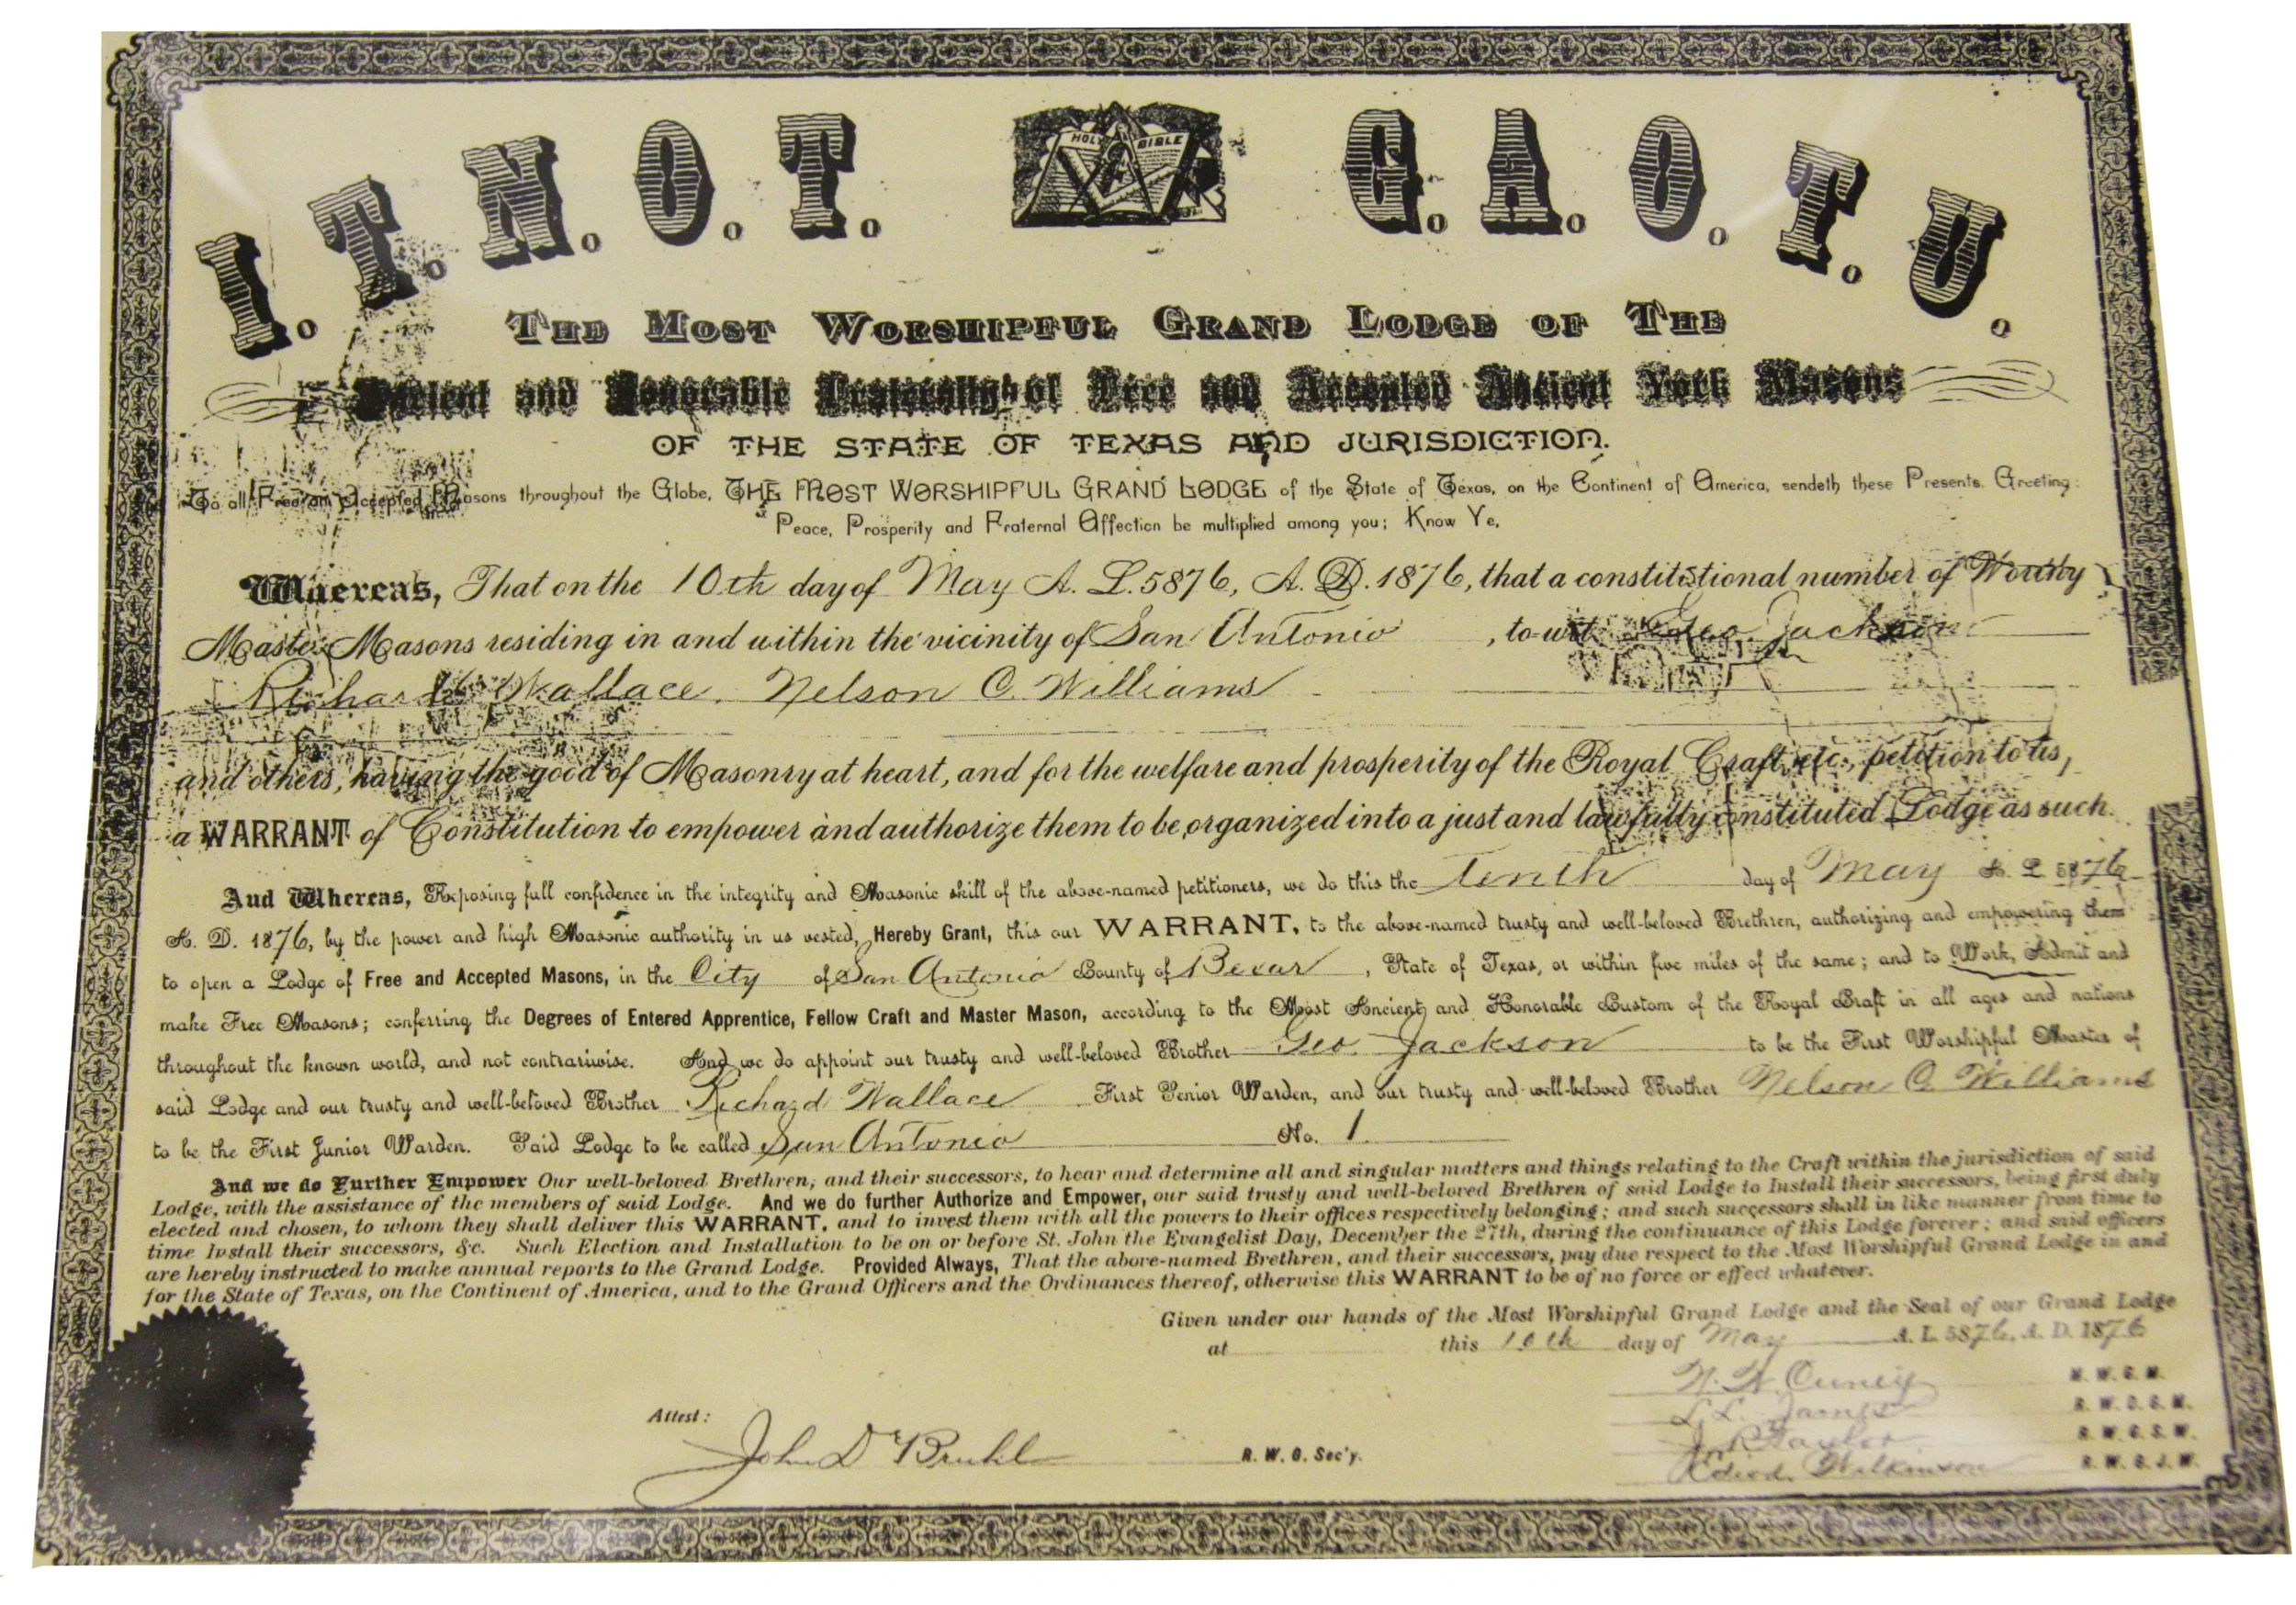 I. T. N. O. T. G. A. O. T. U.
HOLY BIBLE
THE MOST WORSHIPFUL GRAND LODGE OF THE
Ancient and Honorable Fraternity of Free and Accepted Ancient York Masons
OF THE STATE OF TEXAS AND JURISDICTION.
To all Free and Accepted Masons throughout the Globe, THE MOST WORSHIPFUL GRAND LODGE of the State of Texas, on the Continent of America, sendeth these Presents. Greeting:
Peace, Prosperity and Fraternal Affection be multiplied among you; Know Ye,
Whereas, That on the 10th day of May A. L. 5876, A. D. 1876, that a constitutional number of Worthy
Master Masons residing in and within the vicinity of San Antonio, to-wit Geo. Jackson
Richard Wallace. Nelson C. Williams
and others, having the good of Masonry at heart, and for the welfare and prosperity of the Royal Craft, etc., petition to us,
a WARRANT of Constitution to empower and authorize them to be organized into a just and lawfully constituted Lodge as such.
And Whereas, Reposing full confidence in the integrity and Masonic skill of the above-named petitioners, we do this the tenth day of May A. L. 5876
A. D. 1876, by the power and high Masonic authority in us vested, Hereby Grant, this our WARRANT, to the above-named trusty and well-beloved Brethren, authorizing and empowering them
to open a Lodge of Free and Accepted Masons, in the City of San Antonio County of Bexar, State of Texas, or within five miles of the same; and to Work, Admit and
make Free Masons; conferring the Degrees of Entered Apprentice, Fellow Craft and Master Mason, according to the Most Ancient and Honorable Custom of the Royal Craft in all ages and nations
throughout the known world, and not contrariwise. And we do appoint our trusty and well-beloved Brother Geo. Jackson to be the First Worshipful Master of
said Lodge and our trusty and well-beloved Brother Richard Wallace First Senior Warden, and our trusty and well-beloved Brother Nelson C. Williams
to be the First Junior Warden. Said Lodge to be called San Antonio No. 1
And we do Further Empower Our well-beloved Brethren, and their successors, to hear and determine all and singular matters and things relating to the Craft within the jurisdiction of said
Lodge, with the assistance of the members of said Lodge. And we do further Authorize and Empower, our said trusty and well-beloved Brethren of said Lodge to Install their successors, being first duly
elected and chosen, to whom they shall deliver this WARRANT, and to invest them with all the powers to their offices respectively belonging; and such successors shall in like manner from time to
time Install their successors, &c. Such Election and Installation to be on or before St. John the Evangelist Day, December the 27th, during the continuance of this Lodge forever; and said officers
are hereby instructed to make annual reports to the Grand Lodge. Provided Always, That the above-named Brethren, and their successors, pay due respect to the Most Worshipful Grand Lodge in and
for the State of Texas, on the Continent of America, and to the Grand Officers and the Ordinances thereof, otherwise this WARRANT to be of no force or effect whatever.
Given under our hands of the Most Worshipful Grand Lodge and the Seal of our Grand Lodge
at this 10th day of May A. L. 5876, A. D. 1876
N. W. Cuney M. W. G. M.
L. L. James R. W. D. G. M.
J. R. Taylor R. W. G. S. W.
Wilkinson R. W. G. J. W.
Attest: John D. Bruhl R. W. G. Sec'y.